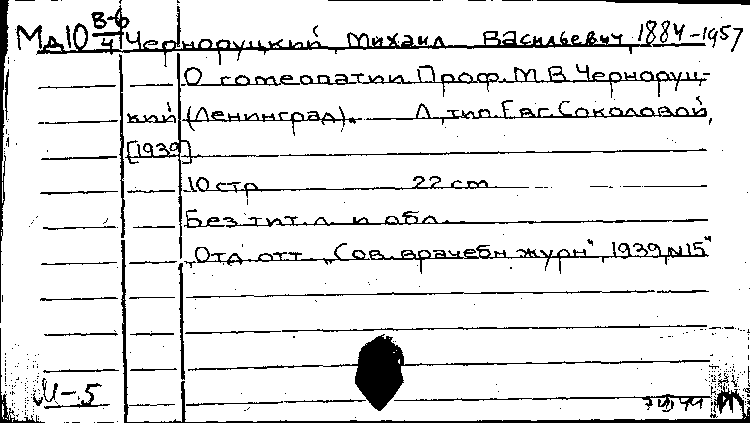 Мд10 В-6/4 Черноруцкий, Михаил Васильевич, 1884-1957
О гомеопатии. Проф. М. В. Черноруц-
кий (Ленинград). Л., тип. Евг. Соколовой,
[1939]
10 стр. 22 cm.
Без тит. л. и обл.
"Отд. отт. „Сов. врачебн. журн", 1939, №15"
М-5